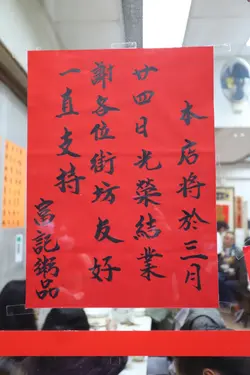 本店將於三月
廿四日光榮結業
謝各位街坊友好
一直支持
富記粥品